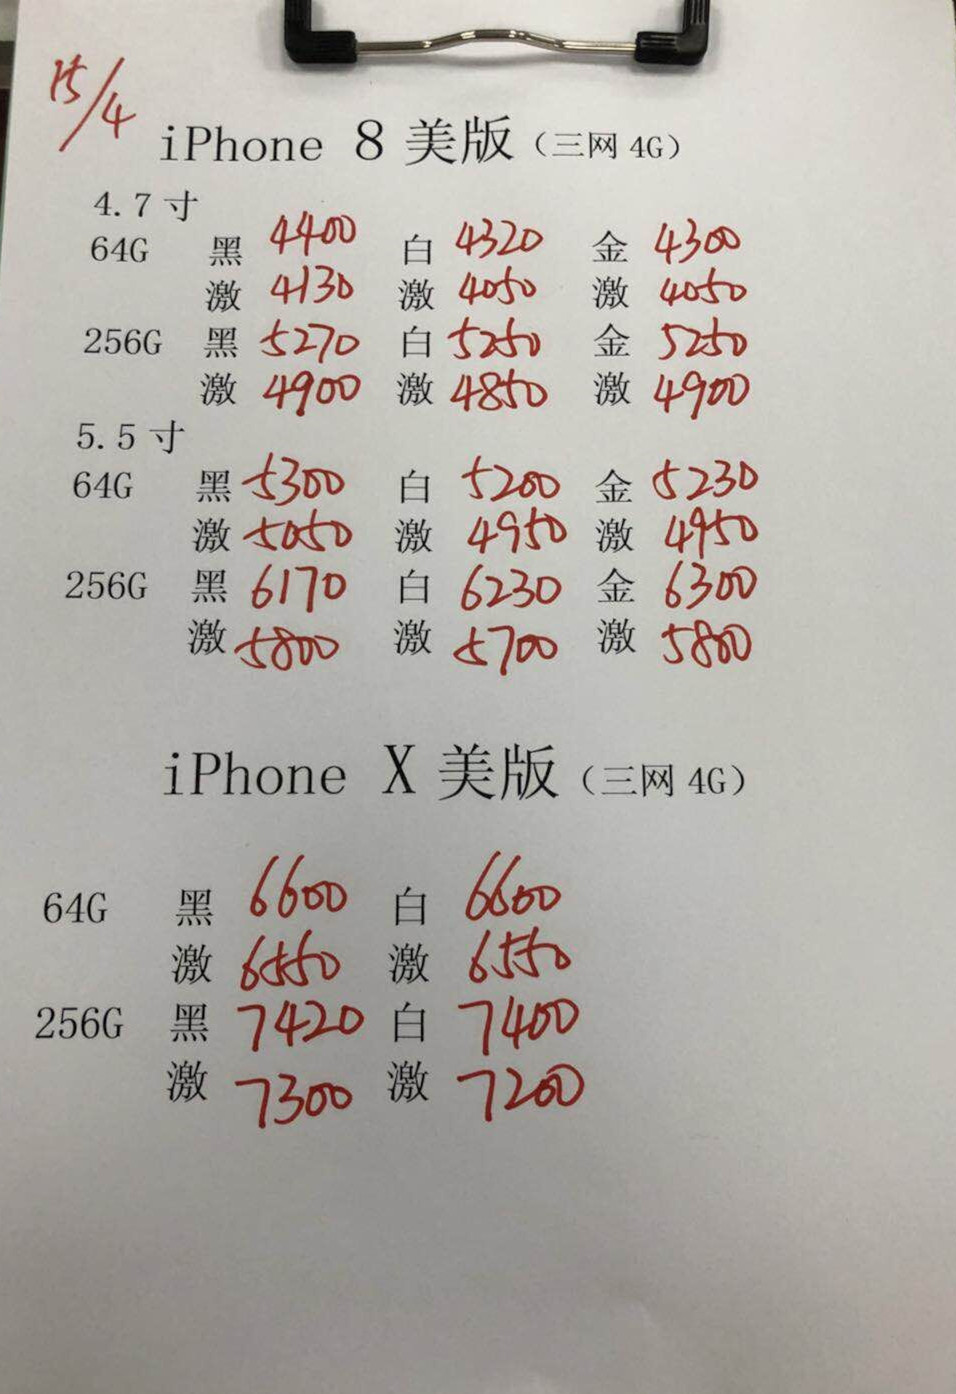 15/4
iPhone 8 美版（三网 4G）
4.7 寸
64G 黑 4400 白 4320 金 4300
激 4130 激 4050 激 4050
256G 黑 5270 白 5250 金 5250
激 4900 激 4850 激 4900
5.5 寸
64G 黑 5300 白 5200 金 5230
激 5050 激 4950 激 4950
256G 黑 6170 白 6230 金 6300
激 5800 激 5700 激 5800
iPhone X 美版（三网 4G）
64G 黑 6600 白 6600
激 6550 激 6550
256G 黑 7420 白 7400
激 7300 激 7200